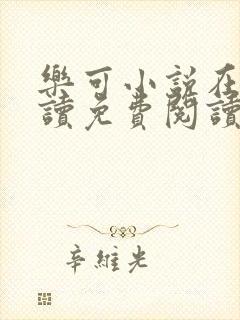 樂可小説在
讀免費閱讀
辛維光